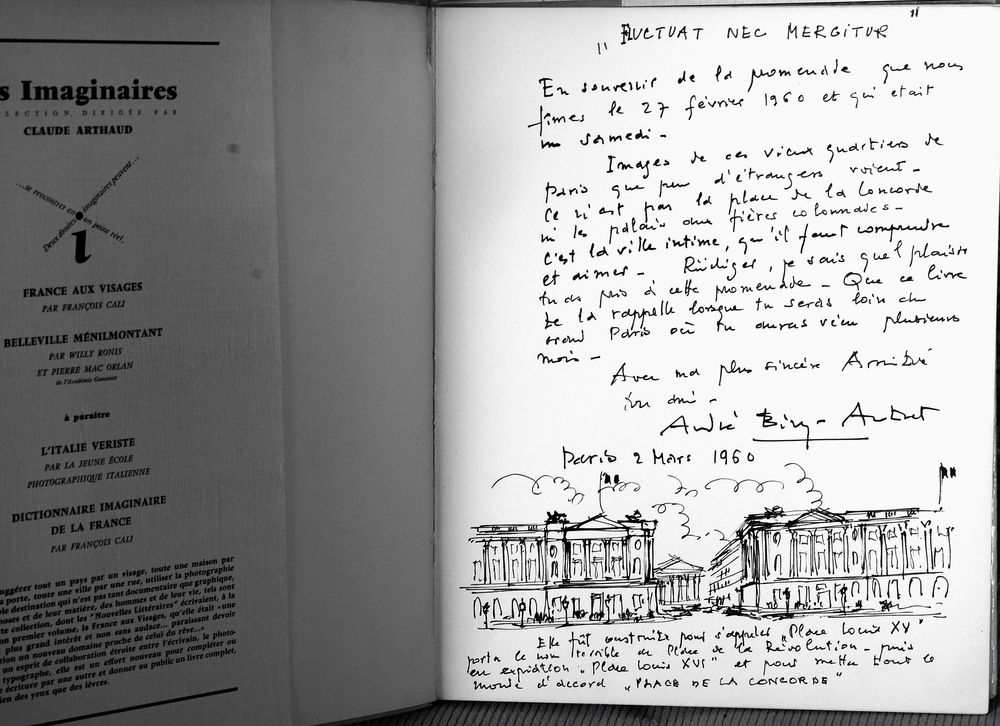 s Imaginaires
LECTION DIRIGÉE PAR
CLAUDE ARTHAUD
...se rencontrer en imaginaires peuvent...
Deux droites un point réel.
i
FRANCE AUX VISAGES
PAR FRANÇOIS CALI
BELLEVILLE MÉNILMONTANT
PAR WILLY RONIS
ET PIERRE MAC ORLAN
de l'Académie Goncourt
à paraître
L'ITALIE VERISTE
PAR LA JEUNE ÉCOLE
PHOTOGRAPHIQUE ITALIENNE
DICTIONNAIRE IMAGINAIRE
DE LA FRANCE
PAR FRANÇOIS CALI
uggérer tout un pays par un visage, toute une maison par
porte, toute une ville par une rue, utiliser la photographie
le destination qui n'est pas tant documentaire que graphique,
oses et de leur matière, des hommes et de leur vie, tels sont
tte collection, dont les "Nouvelles Littéraires" écrivaient, à la
on premier volume, la France aux Visages, qu'elle était «une
plus grand intérêt et non sans audace... paraissant devoir
tion un nouveau domaine proche de celui du rêve...»
un esprit de collaboration étroite entre l'écrivain, le photo-
typographe, elle est un effort nouveau pour compléter ou
e écriture par une autre et donner au public un livre complet,
ien des yeux que des lèvres.
"FLUCTUAT NEC MERGITUR"
En souvenir de la promenade que nous
fîmes le 27 février 1960 et qui était
un samedi -
Images de ces vieux quartiers de
Paris que peu d'étrangers voient -
Ce n'est pas la place de la Concorde
ni les palais aux fières colonnades -
C'est la ville intime, qu'il faut comprendre
et aimer - Rüdiger, je sais quel plaisir
tu as pris à cette promenade - Que ce livre
te la rappelle lorsque tu seras loin du
grand Paris où tu auras vécu plusieurs
mois -
Avec ma plus sincère Amitié
ton ami -
André
Paris 2 Mars 1960
Elle fût construite pour s'appeler "Place Louis XV"
porta le nom terrible de Place de la Révolution - puis
en expiation "Place Louis XVI" et pour mettre tout le
monde d'accord "PLACE DE LA CONCORDE"